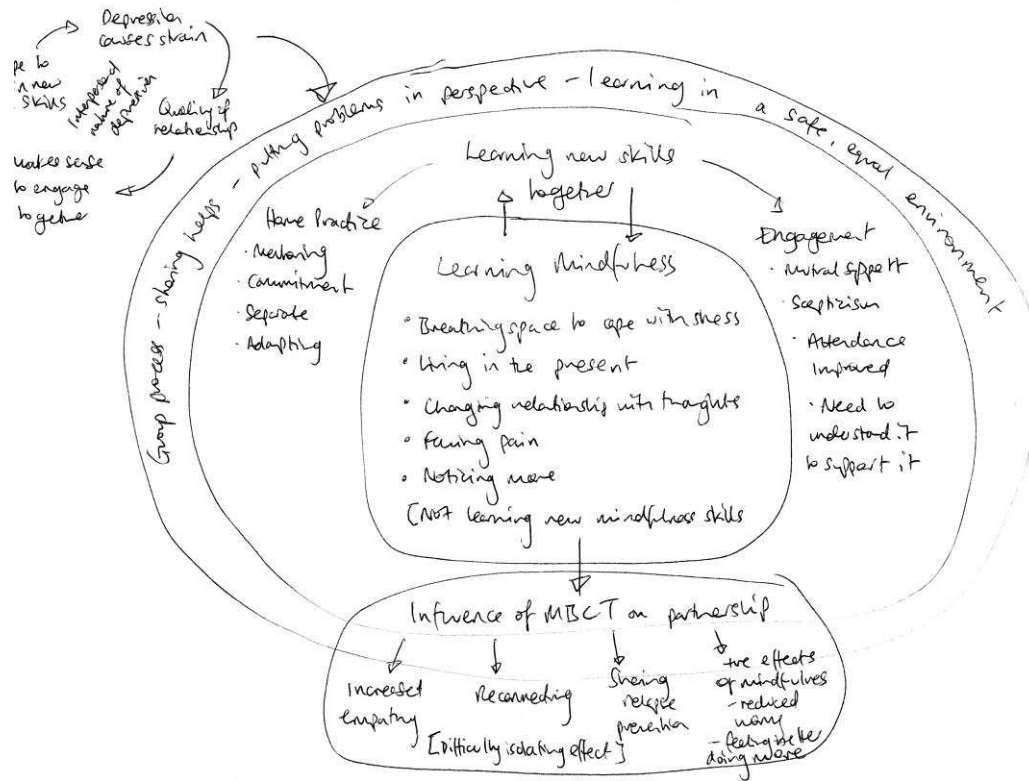 Depression
causes strain
to
new
skills
Interpersonal
nature of
depression
Quality of
relationship
makes sense
to engage
together
Group process – sharing helps – putting problems in perspective – learning in a safe, equal environment
Learning new skills
together
Home Practice
· Mentoring
· Commitment
· Separate
· Adapting
Engagement
· Mutual support
· Scepticism
· Attendance
improved
· Need to
understand it
to support it
Learning Mindfulness
· Breathing space to cope with stress
· Living in the present
· Changing relationship with thoughts
· Facing pain
· Noticing more
[Not learning new mindfulness skills
Influence of MBCT on partnership
Increased
empathy
Reconnecting
Sharing
relapse
prevention
+ive effects
of mindfulness
- reduced
worry
- feeling better
doing more
[Difficulty isolating effect]